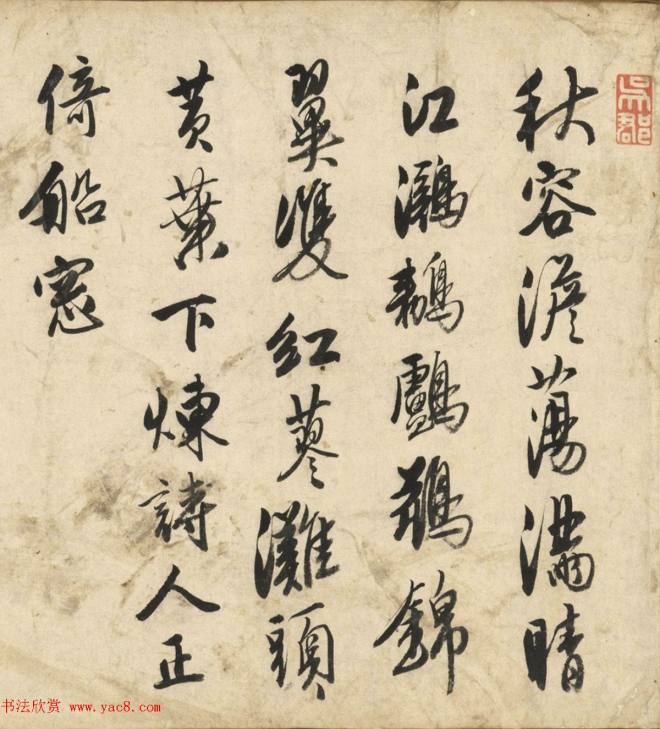 秋容澹蕩滿晴
江鸂鶒鸕鷀錦
翼雙紅蓼灘頭
黄葉下煉詩人正
倚船窓
吳郡
书法欣赏 www.yac8.com